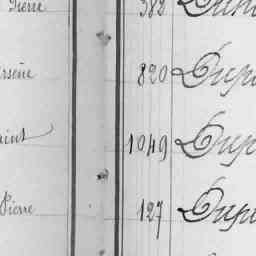 Pierre 382
Arsène 820 Dup
1049 Dup
Pierre 127 Dup